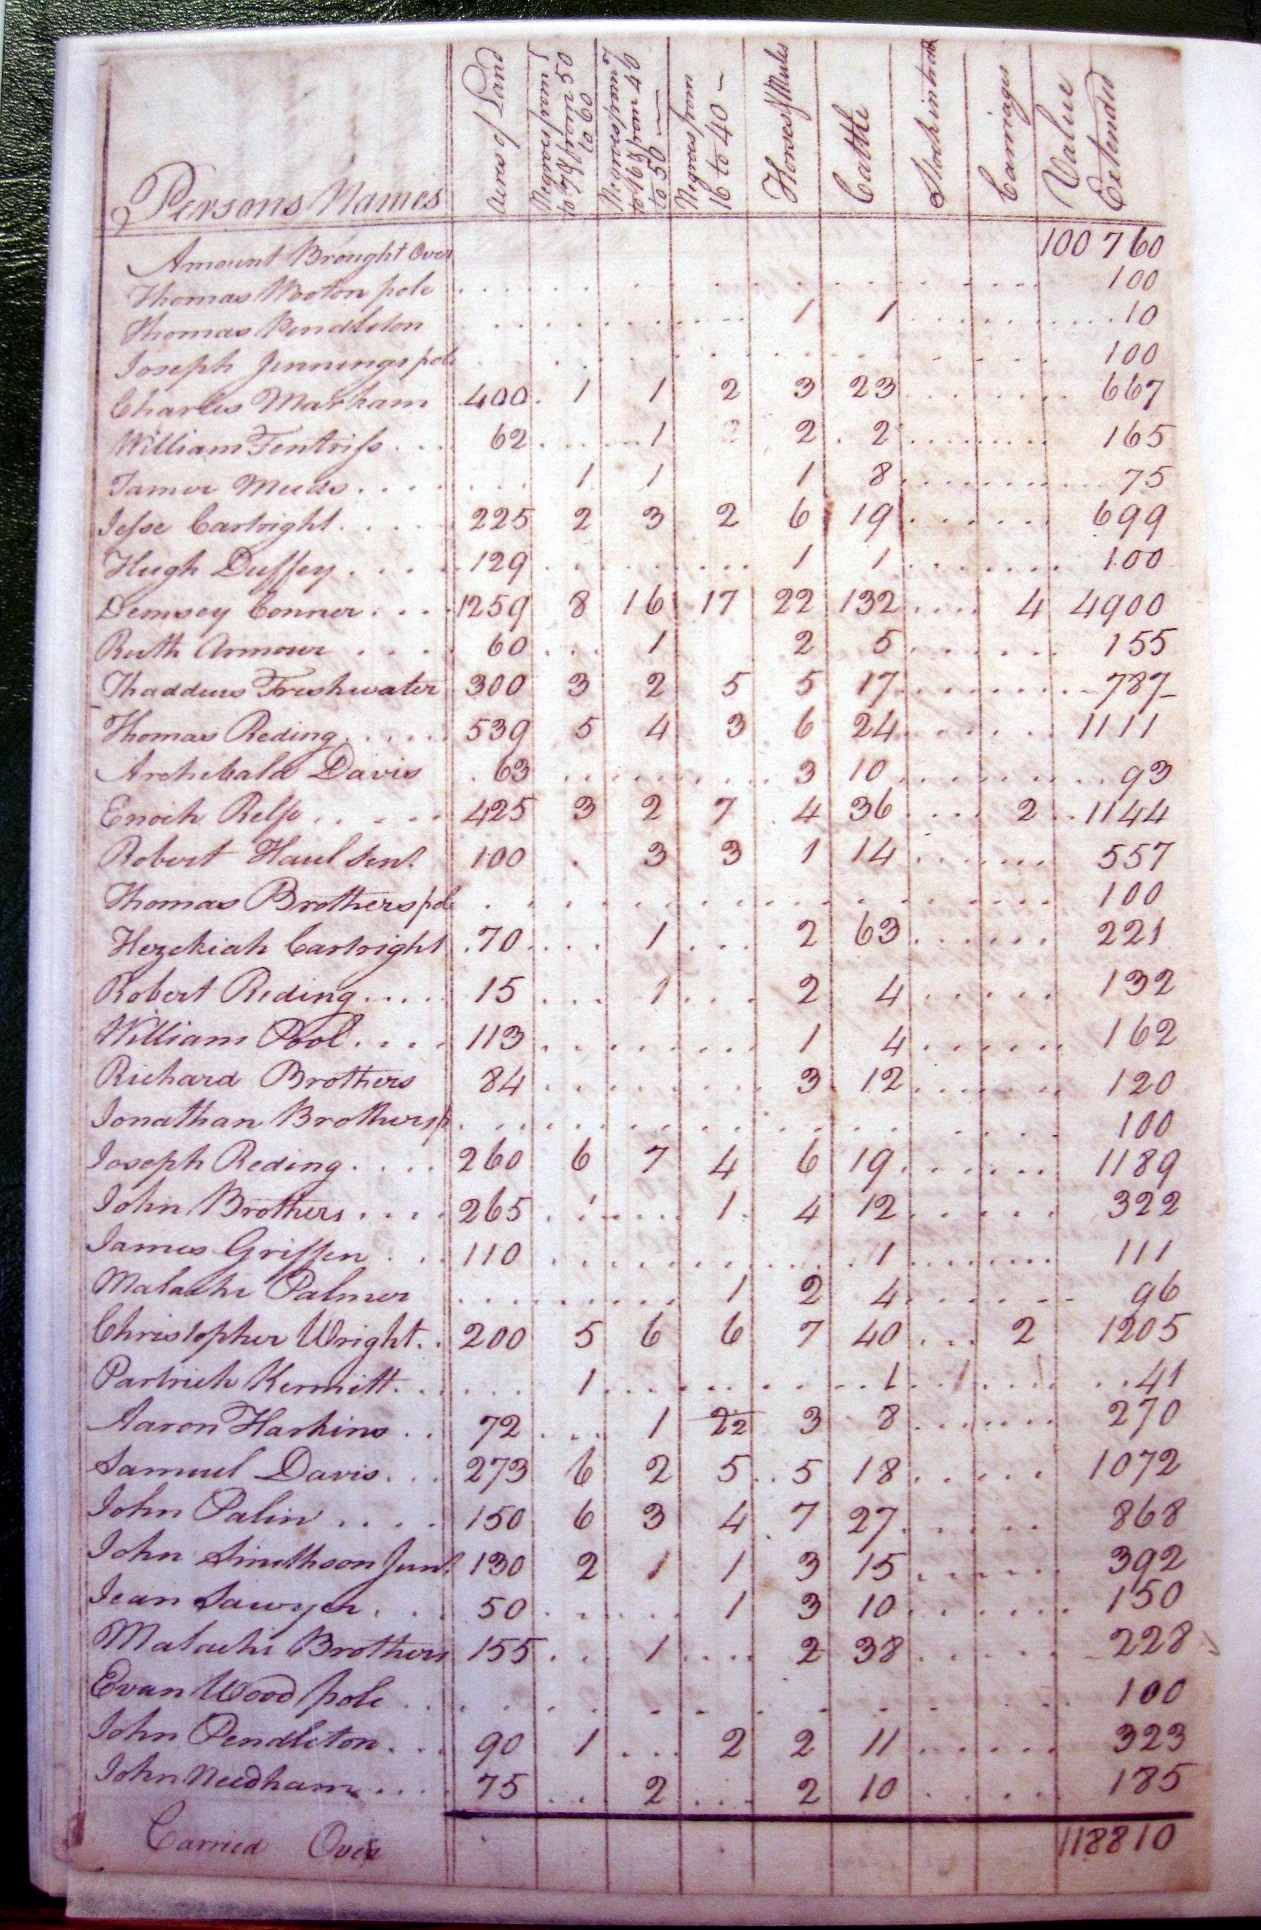 Persons Names | Acres of Land | Negroes from to & from 50 to 60 | Negroes from to 16 & from 40 to 50 | Negroes from 16 to 40 | Horses & Mules | Cattle | Stock in trade | Carriages | Value Extended
Amount Brought Over 100760
Thomas Wooton pole 100
Thomas Pendleton 1 1 10
Joseph Jennings pole 100
Charles Markham 400 1 1 2 3 23 667
William Fentriss 62 1 2 2 2 165
Tamer Meeds 1 1 1 8 75
Jesse Cartright 225 2 3 2 6 19 699
Hugh Duffey 129 1 1 100
Demsey Conner 1259 8 16 17 22 132 4 4900
Ruth Armour 60 1 2 5 155
Thaddeus Freshwater 300 3 2 5 5 17 787
Thomas Reding 539 5 4 3 6 24 1111
Archibald Davis 63 3 10 93
Enoch Relfe 425 3 2 7 4 36 2 1144
Robert Haul Senr 100 3 3 1 14 557
Thomas Brothers pole 100
Hezekiah Cartright 70 1 2 63 221
Robert Reding 15 1 2 4 132
William Pool 113 1 4 162
Richard Brothers 84 3 12 120
Jonathan Brothers p 100
Joseph Reding 260 6 7 4 6 19 1189
John Brothers 265 1 4 12 322
James Griffen 110 1 111
Malachi Palmer 1 2 4 96
Christopher Wright 200 5 6 6 7 40 2 1205
Partrick Kermitt 1 1 41
Aaron Harkins 72 1 22 3 8 270
Samuel Davis 273 6 2 5 5 18 1072
John Palin 150 6 3 4 7 27 868
John Smithson Junr 130 2 1 1 3 15 392
Jean Sawyer 50 1 3 10 150
Malachi Brothers 155 1 2 38 228
Evan Wood pole 100
John Pendleton 90 1 2 2 11 323
John Needham 75 2 2 10 185
Carried Over 118810